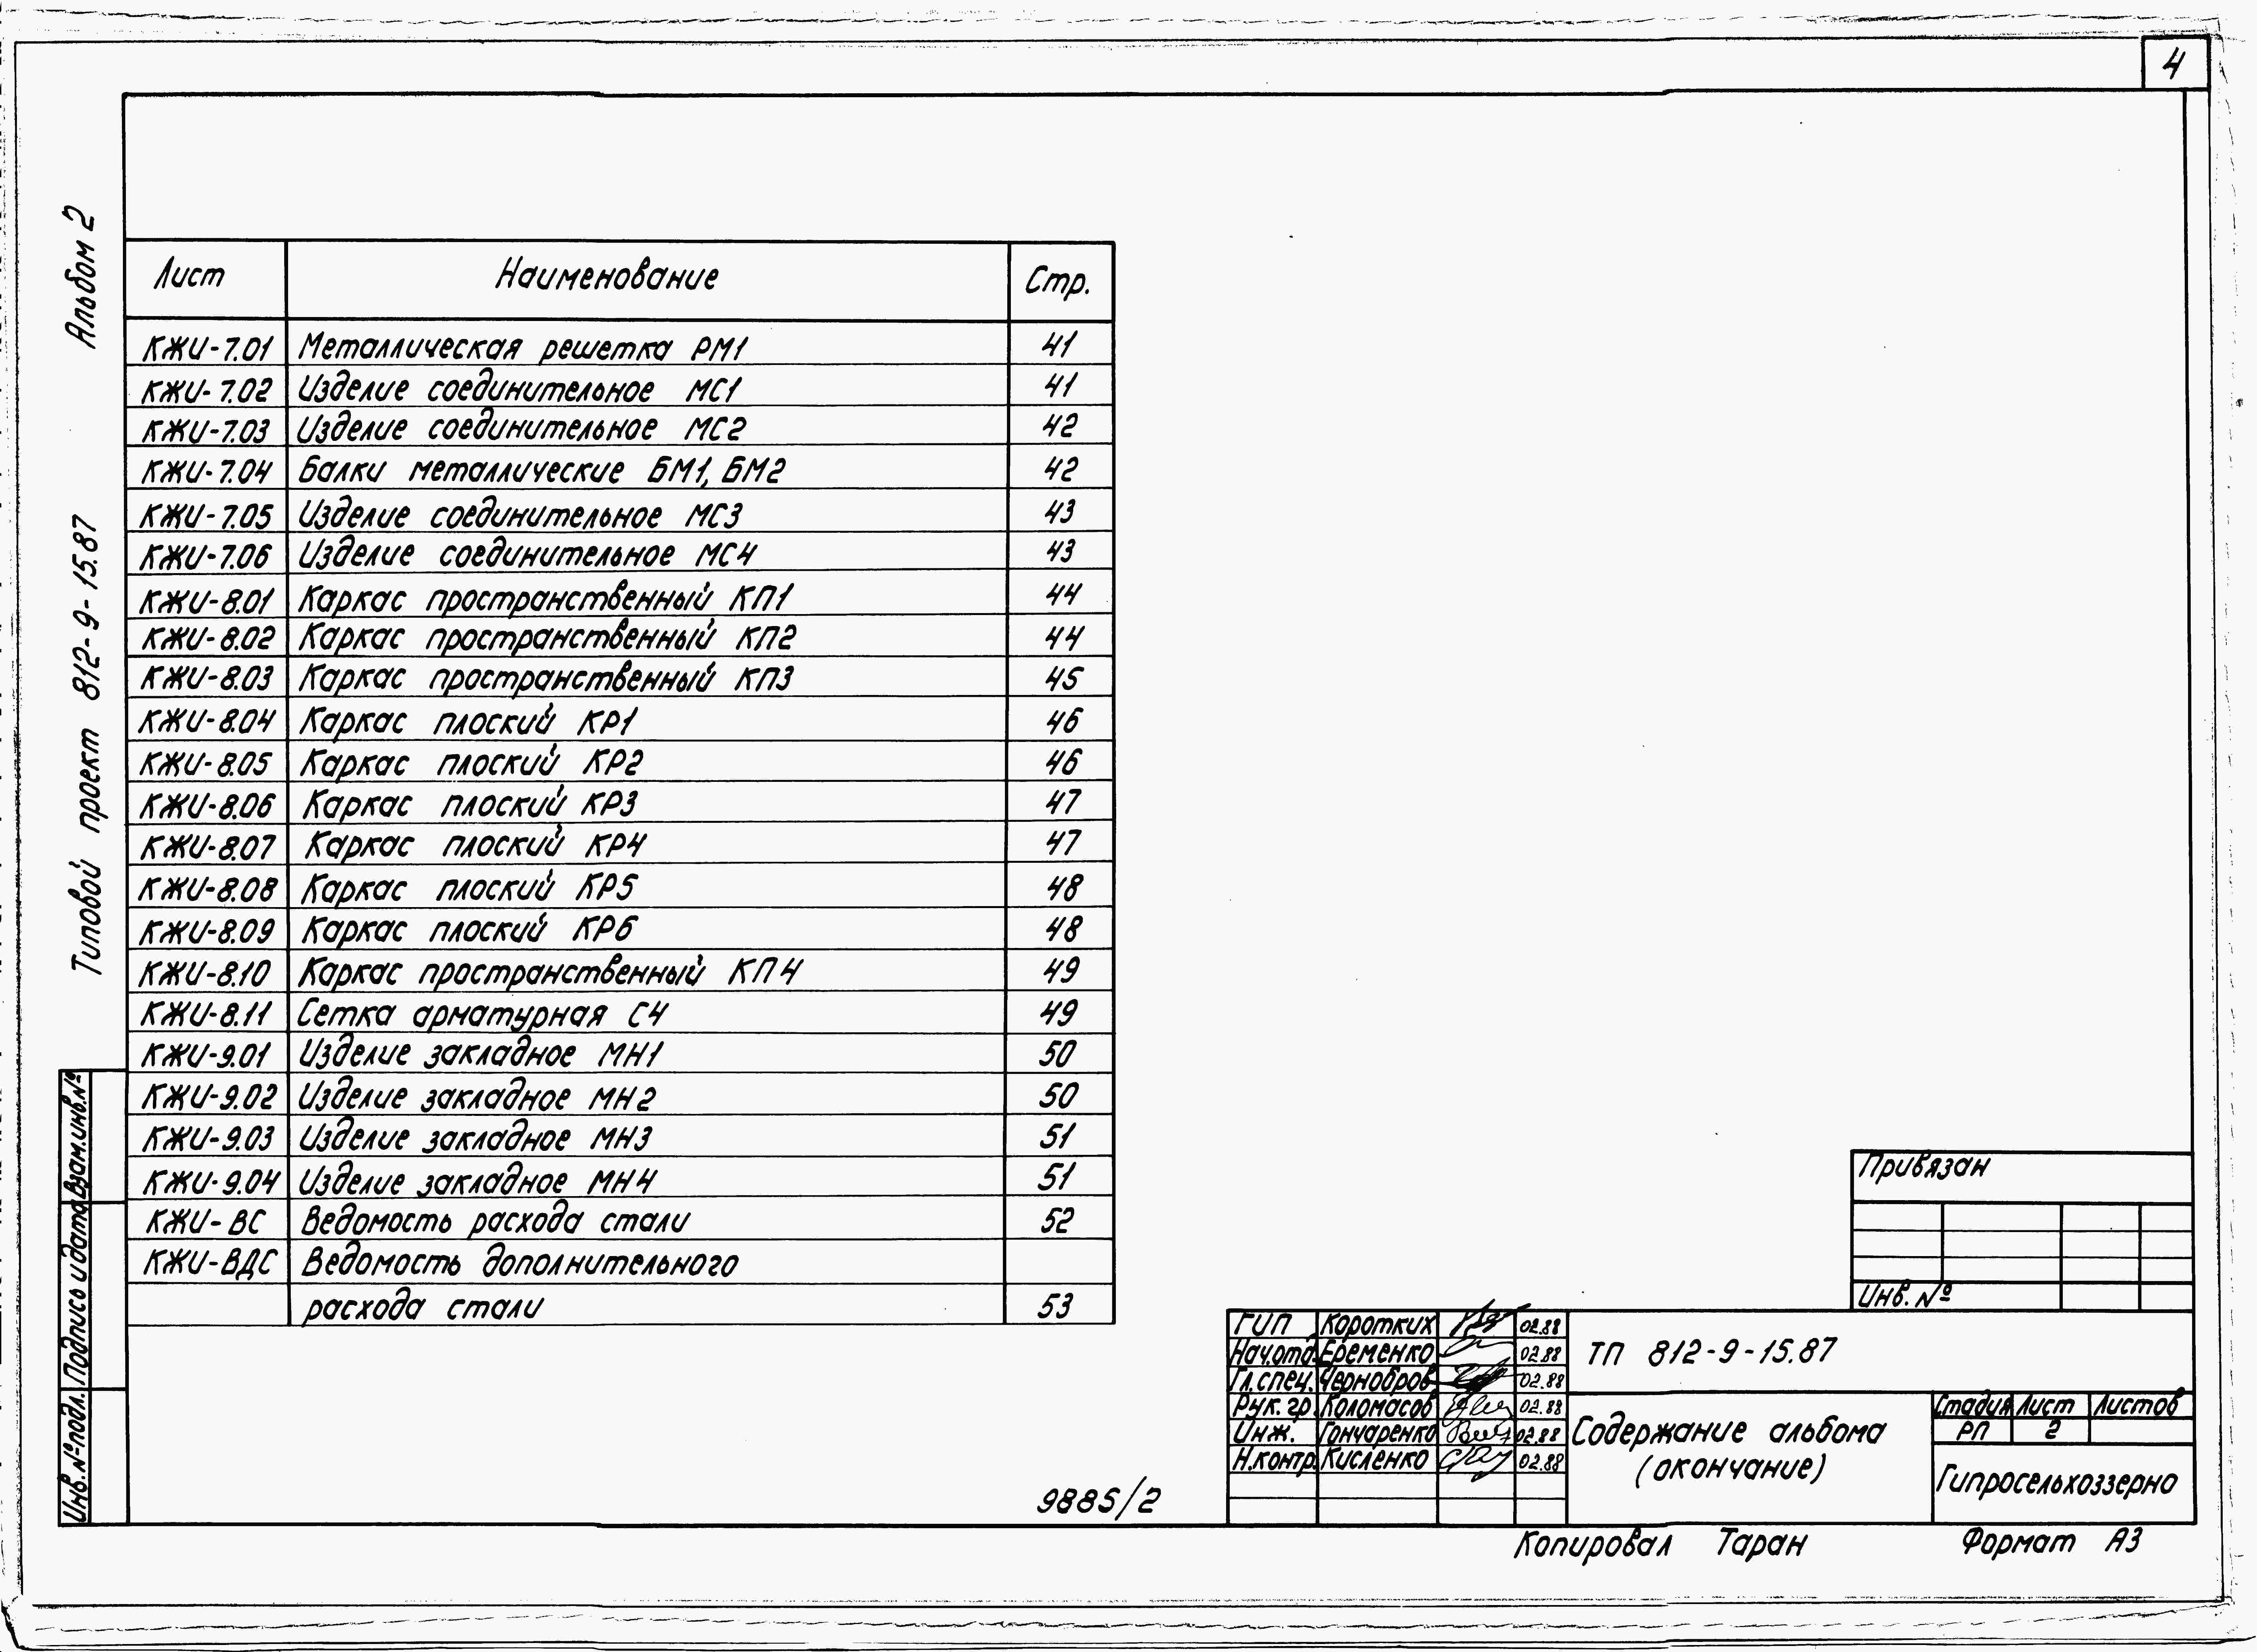 4
Альбом 2
Типовой проект 812-9-15.87
Лист Наименование Стр.
КЖИ-7.01 Металлическая решетка РМ1 41
КЖИ-7.02 Изделие соединительное МС1 41
КЖИ-7.03 Изделие соединительное МС2 42
КЖИ-7.04 Балки металлические БМ1, БМ2 42
КЖИ-7.05 Изделие соединительное МС3 43
КЖИ-7.06 Изделие соединительное МС4 43
КЖИ-8.01 Каркас пространственный КП1 44
КЖИ-8.02 Каркас пространственный КП2 44
КЖИ-8.03 Каркас пространственный КП3 45
КЖИ-8.04 Каркас плоский КР1 46
КЖИ-8.05 Каркас плоский КР2 46
КЖИ-8.06 Каркас плоский КР3 47
КЖИ-8.07 Каркас плоский КР4 47
КЖИ-8.08 Каркас плоский КР5 48
КЖИ-8.09 Каркас плоский КР6 48
КЖИ-8.10 Каркас пространственный КП4 49
КЖИ-8.11 Сетка арматурная С4 49
КЖИ-9.01 Изделие закладное МН1 50
КЖИ-9.02 Изделие закладное МН2 50
КЖИ-9.03 Изделие закладное МН3 51
КЖИ-9.04 Изделие закладное МН4 51
КЖИ-ВС Ведомость расхода стали 52
КЖИ-ВДС Ведомость дополнительного
расхода стали 53
Взам.инв.№
Подпись и дата
Инв.№подл.
Привязан
Инв. №
ГИП Коротких 02.88
Нач.отд. Еременко 02.88
Гл.спец. Чернобров 02.88
Рук. гр. Коломасов 02.88
Инж. Гончаренко 02.88
Н.контр. Кисленко 02.88
ТП 812-9-15.87
Содержание альбома
(окончание)
Стадия Лист Листов
РП 2
Гипросельхоззерно
9885/2
Копировал Таран Формат А3